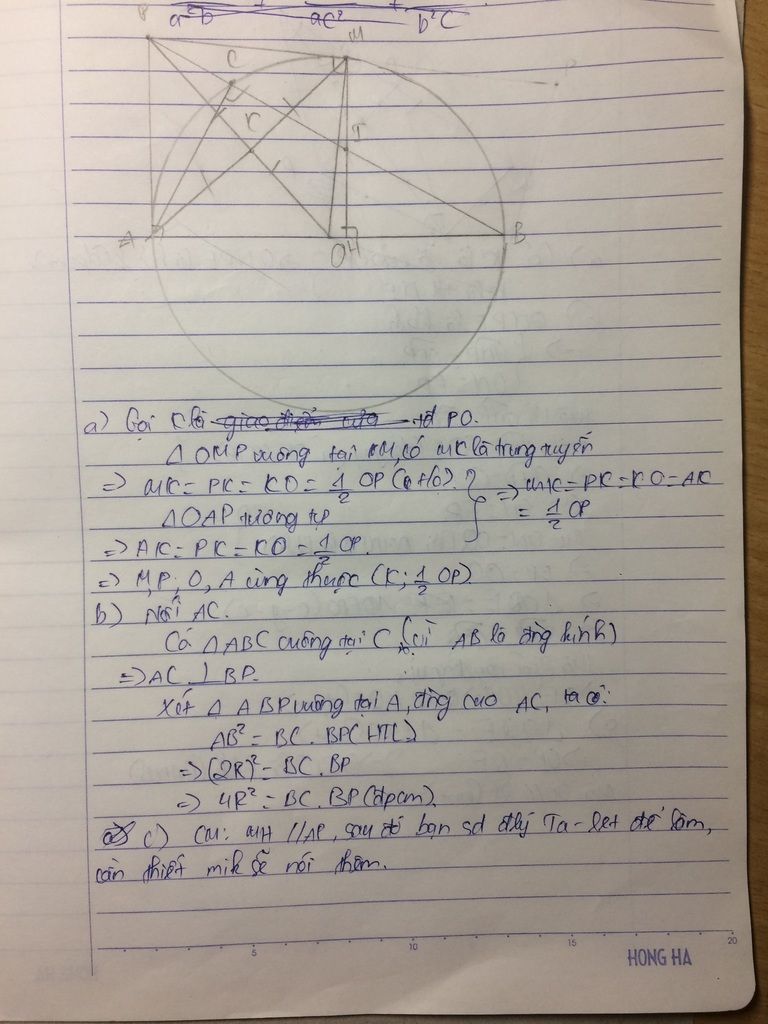 a²b + ac² + b²C
P
C
M
I
A
OH
B
a) Gọi K là tđ PO.
Δ OMP vuông tại M, có MK là trung tuyến
=> MK = PK = KO = 1/2 OP => MK = PK = KO = AK
Δ OAP tương tự = 1/2 OP
=> AK = PK = KO = 1/2 OP.
=> M, P, O, A cùng thuộc (K; 1/2 OP)
b) Nối AC.
Có Δ ABC vuông tại C (vì AB là đg kính)
=> AC ⊥ BP.
Xét Δ ABP vuông tại A, đg cao AC, ta có:
AB² = BC . BP (HTL)
=> (2R)² = BC . BP
=> 4R² = BC . BP (đpcm)
c) CM: MH // AP, sau đó bạn sd đlý Ta-let để làm,
cần thiết mik sẽ nói thêm.
5 10 15 20
HONG HA